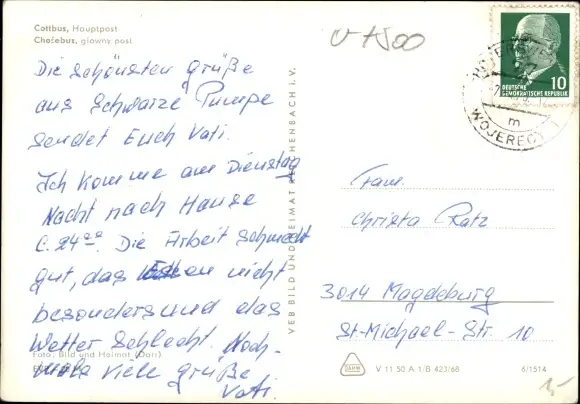 Cottbus, Hauptpost
Chośebuz, głowny post
Die schönsten Grüße
aus Schwarze Pumpe
sendet Euch Vati.
Ich komme am Dienstag
Nacht nach Hause
C. 24⁰⁰. Die Arbeit schmeckt
gut, das Essen nicht
besonders und das
Wetter schlecht. Noch-
mals viele Grüße
Vati.
Foto: Bild und Heimat (Dorr)
VEB BILD UND HEIMAT REICHENBACH i. V.
DEUTSCHE
DEMOKRATISCHE REPUBLIK
10
WOJERECY 1
m
Fam.
Christa Ratz
3014 Magdeburg
St.-Michael-Str. 10
V 11 50 A 1/B 423/68
6/1514